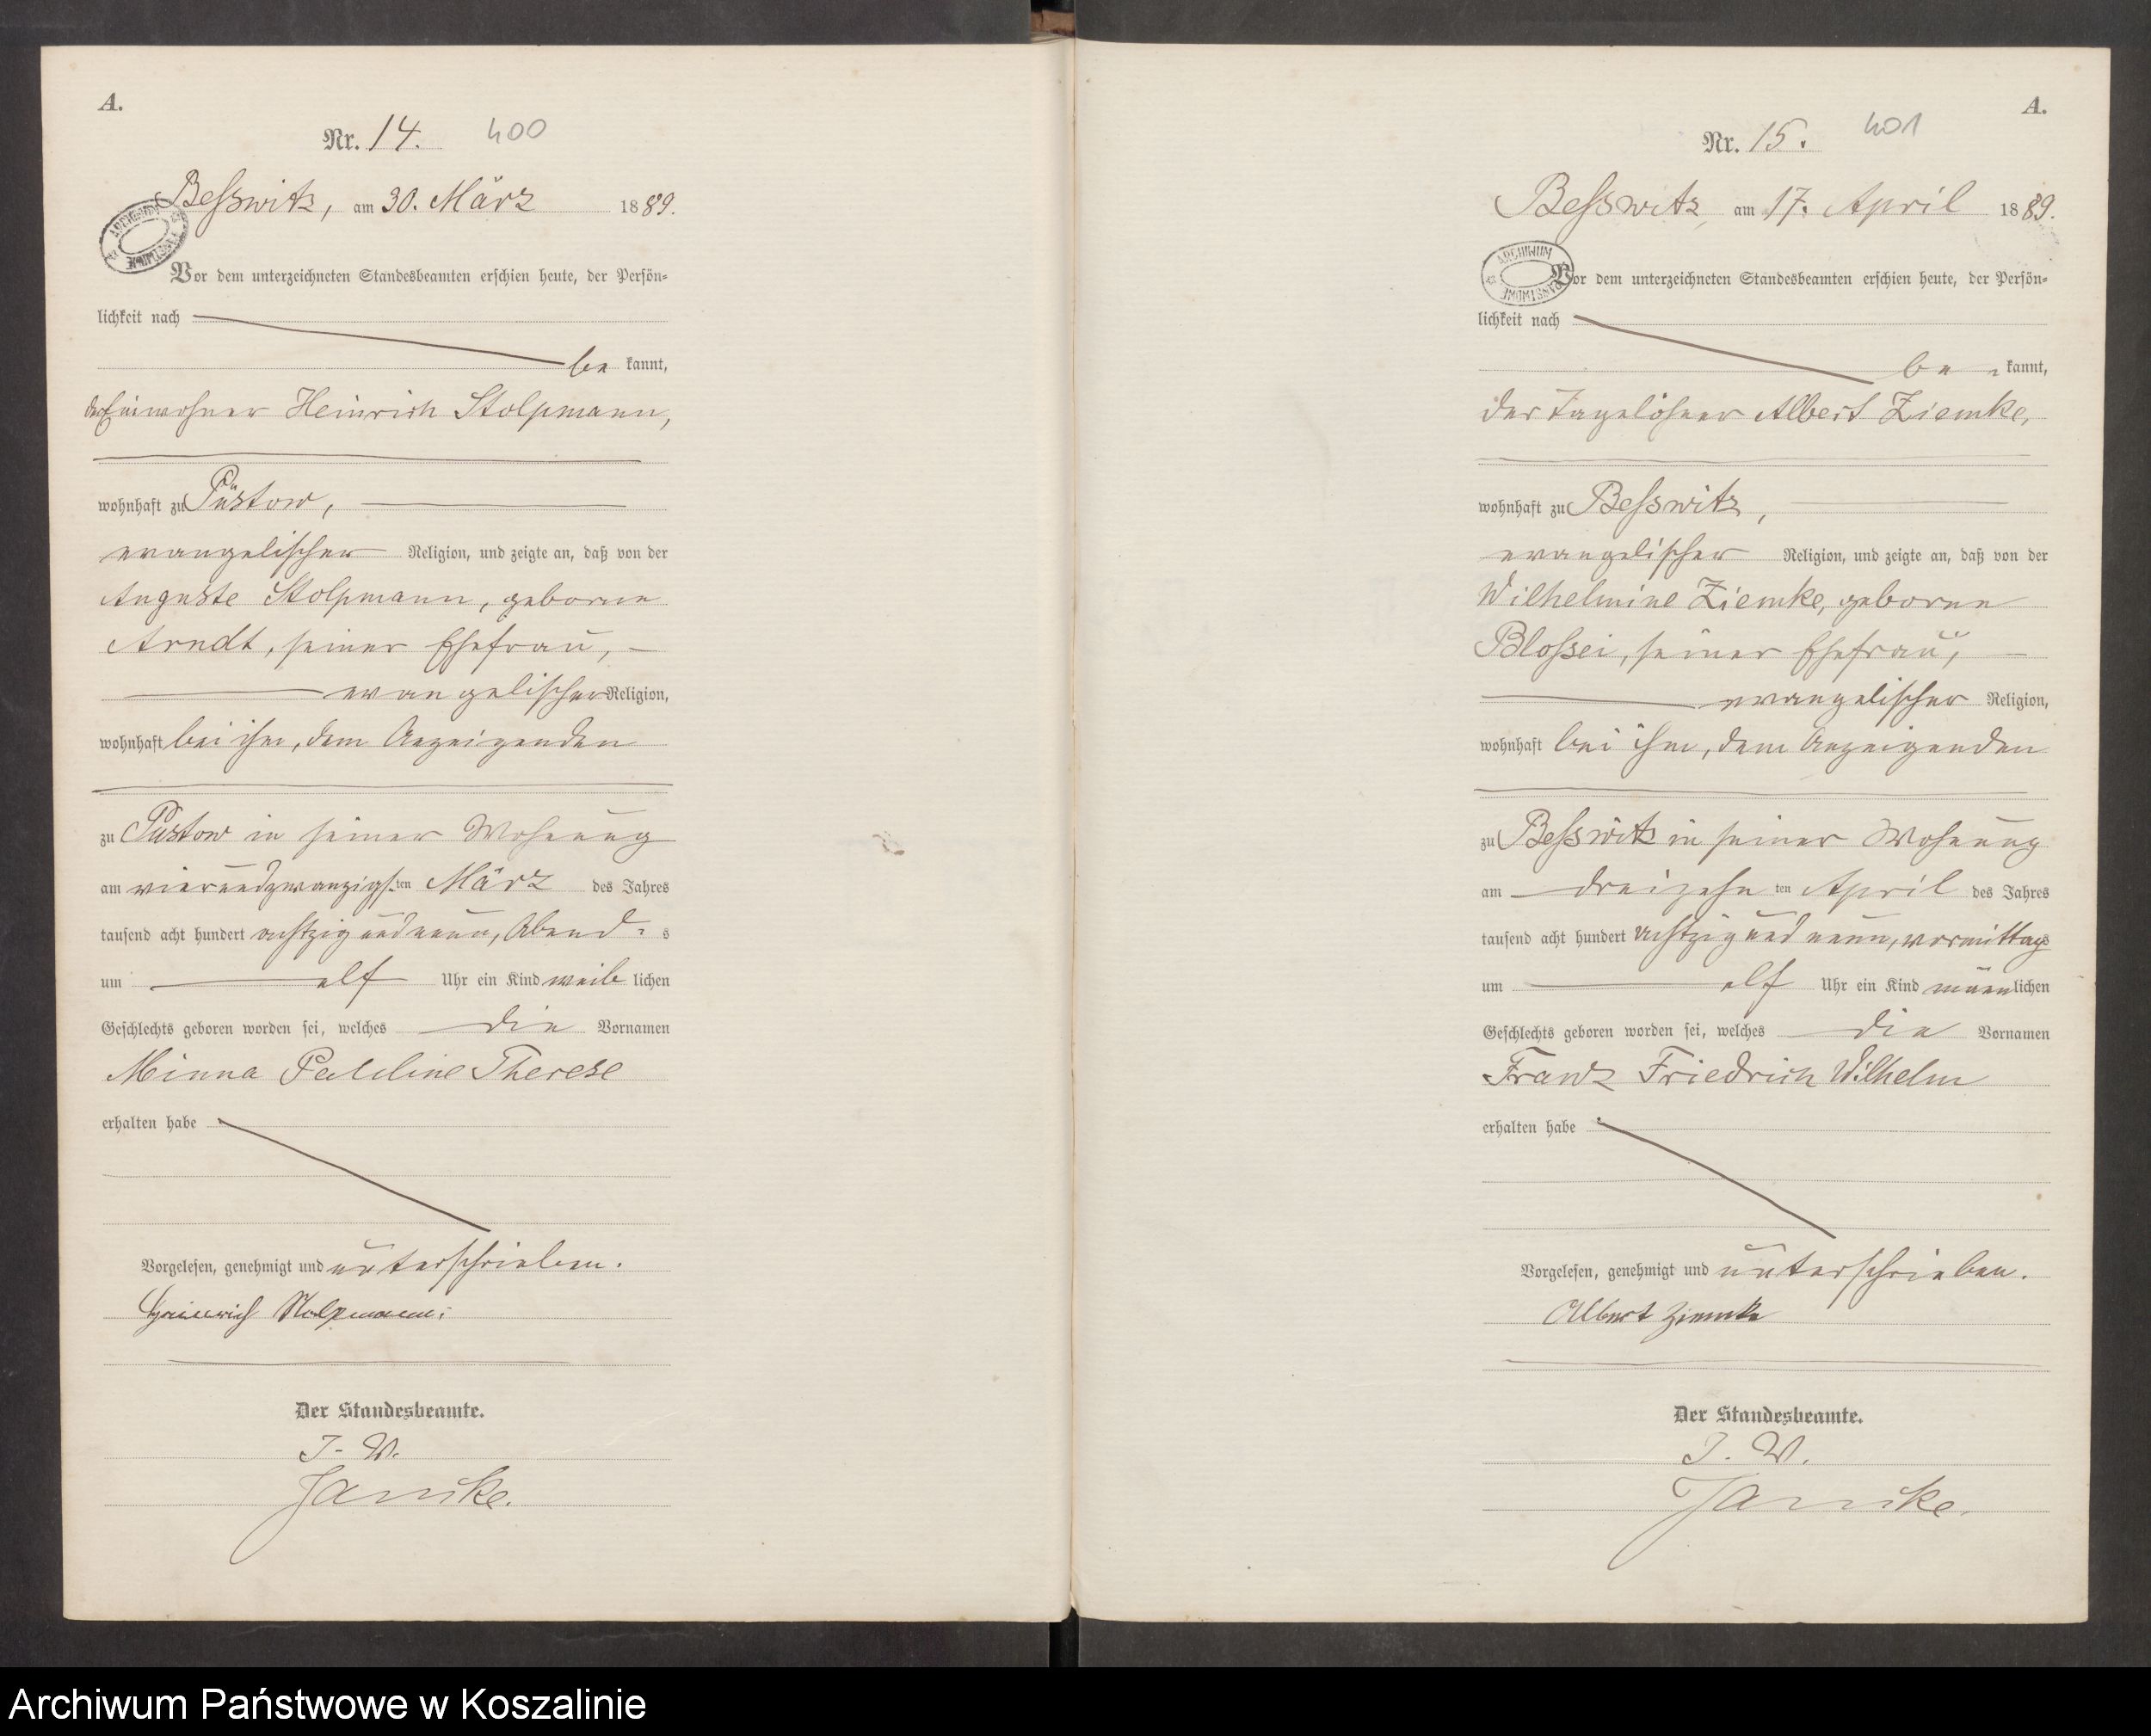 A.
Nr. 14. 400
Beßwitz, am 30. März 1889.
ARCHIWUM PAŃSTWOWE
Vor dem unterzeichneten Standesbeamten erschien heute, der Persön-
lichkeit nach
be kannt,
der Einwohner Heinrich Stolpmann,
wohnhaft zu Püstow,
evangelischer Religion, und zeigte an, daß von der
Auguste Stolpmann, geborne
Arndt, seiner Ehefrau,
evangelischer Religion,
wohnhaft bei ihm, dem Anzeigenden
zu Püstow in seiner Wohnung
am vierundzwanzigsten März des Jahres
tausend acht hundert achtzig und neun, Abend-s
um elf Uhr ein Kind weib lichen
Geschlechts geboren worden sei, welches die Vornamen
Minna Pauline Therese
erhalten habe
Vorgelesen, genehmigt und unterschrieben.
Heinrich Stolpmann.
Der Standesbeamte.
J. V.
Janike.
A.
Nr. 15. 401
Beßwitz, am 17. April 1889.
ARCHIWUM PAŃSTWOWE
Vor dem unterzeichneten Standesbeamten erschien heute, der Persön-
lichkeit nach
be kannt,
der Tagelöhner Albert Ziemke,
wohnhaft zu Beßwitz,
evangelischer Religion, und zeigte an, daß von der
Wilhelmine Ziemke, geborne
Bloßei, seiner Ehefrau,
evangelischer Religion,
wohnhaft bei ihm, dem Anzeigenden
zu Beßwitz in seiner Wohnung
am dreizehn ten April des Jahres
tausend acht hundert achtzig und neun, vormittags
um elf Uhr ein Kind männlichen
Geschlechts geboren worden sei, welches die Vornamen
Franz Friedrich Wilhelm
erhalten habe
Vorgelesen, genehmigt und unterschrieben.
Albert Ziemke
Der Standesbeamte.
J. V.
Janike.
Archiwum Państwowe w Koszalinie